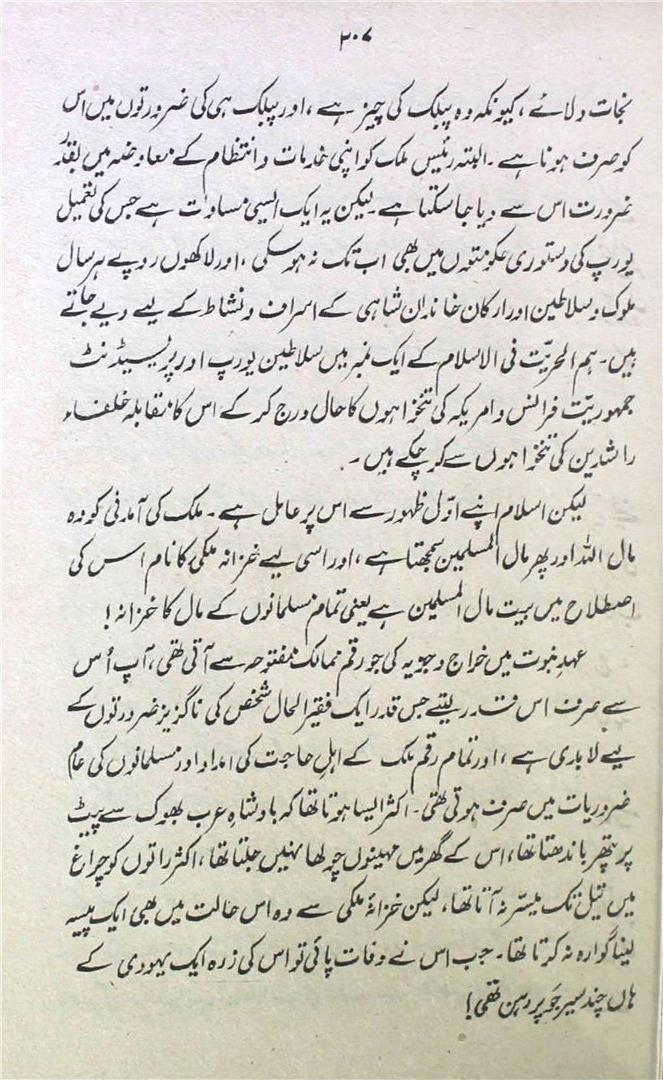 ۲۰۷
نجات دلائے ، کیونکہ وہ پبلک کی چیز ہے ، اور پبلک ہی کی ضرورتوں میں اس
کو صرف ہونا ہے ۔ البتہ رئیسِ ملک کو اپنی خدمات و انتظام کے معاوضہ میں بقدر
ضرورت اس سے دیا جا سکتا ہے لیکن یہ ایک ایسی مساوات ہے جس کی تعمیل
یورپ کی دستوری حکومتوں میں بھی اب تک نہ ہو سکی ، اور لاکھوں روپے ہر سال
ملوک و سلاطین اور ارکان خاندان شاہی کے اسراف و نشاط کے لیے دیے جاتے
ہیں ۔ ہم الحریّت فی الاسلام کے ایک نمبر میں سلاطین یورپ اور پریسیڈنٹ
جمہوریّت فرانس و امریکہ کی تنخواہوں کا حال درج کر کے اس کا مقابلہ خلفاء
راشدین کی تنخواہوں سے کر چکے ہیں ۔
لیکن اسلام اپنے اوّل ظہور سے اس پر عامل ہے ۔ ملک کی آمدنی کو وہ
مال اللہ اور پھر مال المسلمین سمجھتا ہے ، اور اسی لیے خزانہ ملکی کا نام اس کی
اصطلاح میں بیت مال المسلمین ہے یعنی تمام مسلمانوں کے مال کا خزانہ !
عہدِ نبوت میں خراج و جزیہ کی جو رقم ممالک مفتوحہ سے آتی تھی ، آپ اُس
سے صرف اس قدر لیتے جس قدر ایک فقیر الحال شخص کی ناگزیز ضرورتوں کے
لیے لابدی ہے ، اور تمام رقم ملک کے اہلِ حاجت کی امداد اور مسلمانوں کی عام
ضروریات میں صرف ہوتی تھی ۔ اکثر ایسا ہوتا تھا کہ بادشاہِ عرب بھوک سے پیٹ
پر پتھر باندھتا تھا ، اس کے گھر میں مہینوں چولھا نہیں جلتا تھا ، اکثر راتوں کو چراغ
میں تیل تک میسّر نہ آتا تھا ، لیکن خزانۂ ملکی سے وہ اس حالت میں بھی ایک پیسہ
لینا گوارہ نہ کرتا تھا ۔ جب اس نے وفات پائی تو اس کی زرہ ایک یہودی کے
ہاں چند سیر جَو پر رہن تھی !